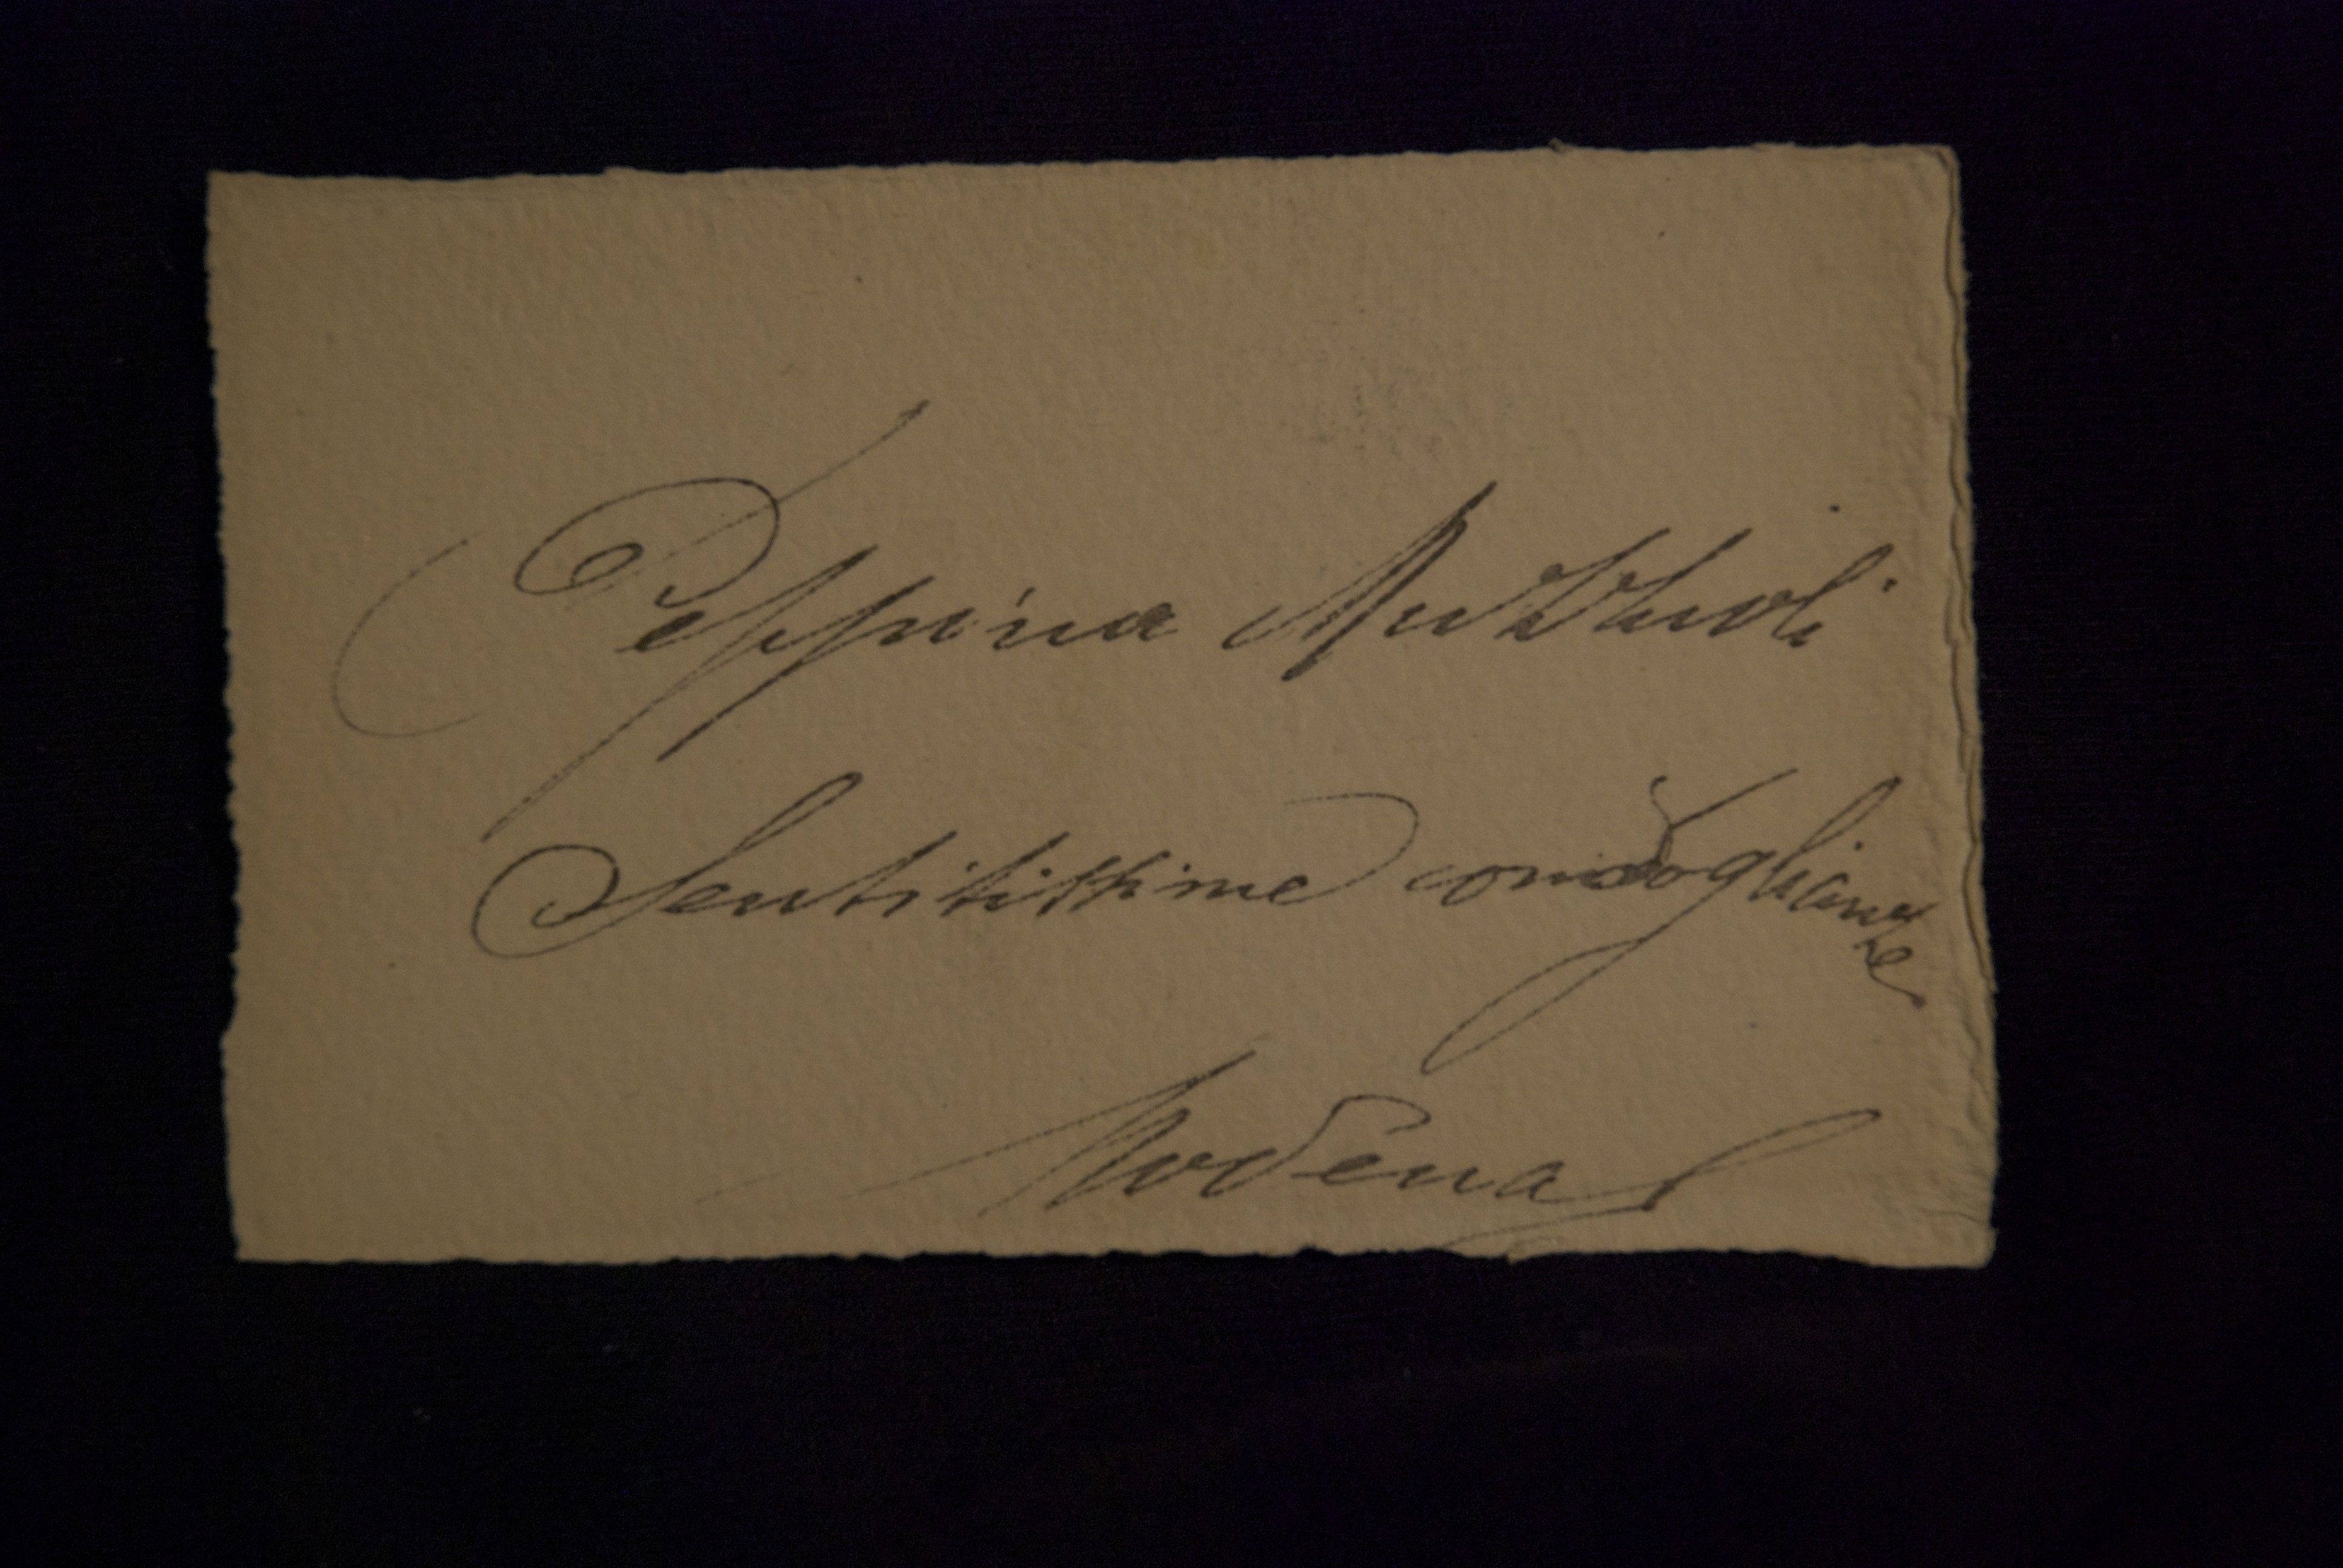 Peppina
Sentitissime condoglianze
Modena